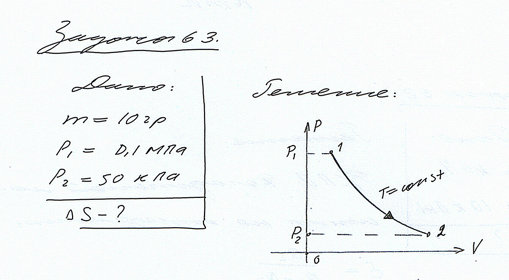 Задача 63.
Дано:
m = 10 гр
P₁ = 0,1 МПа
P₂ = 50 кПа
ΔS - ?
Решение:
P
P₁
1
T=const
P₂
2
0
V